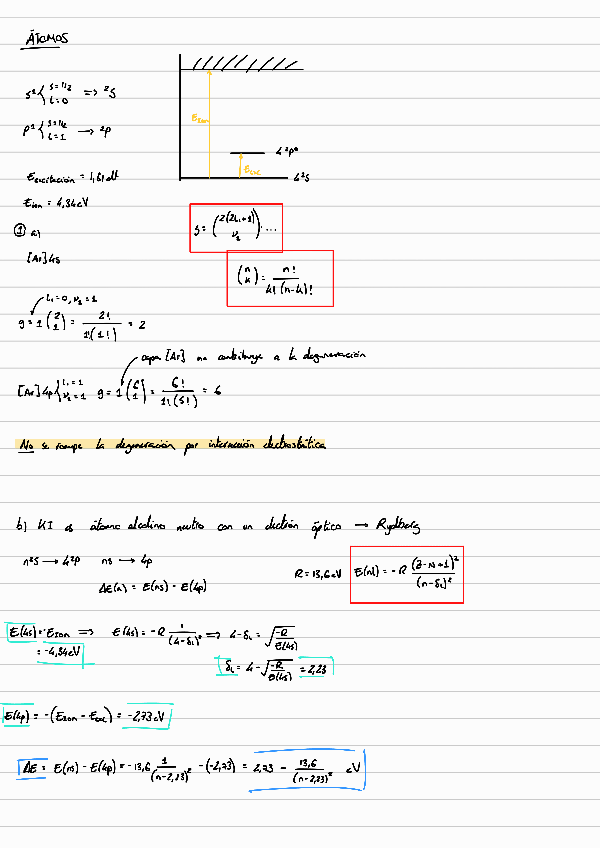 ÁTOMOS
s¹ { s=1/2 l=0 => ²S
p¹ { s=1/2 l=1 → ²P
E_ion
E_exc
4²Pº
4²S
E_excitación = 1,61 eV
E_ion = 4,34 eV
① a)
g = (2(2l_i+1) ν_i) ....
[Ar]4s
(n k) = n! / k!(n-k)!
l_i=0, ν_i=1
g = 1 (2 1) = 2! / 1!(1!) = 2
capa [Ar] no contribuye a la degeneración
[Ar]4p { l_i=1 ν_i=1 g = 1 (6 1) = 6! / 1!(5!) = 6
No se rompe la degeneración por interacción electrostática
b) KI es átomo alcalino neutro con un electrón óptico → Rydberg
n²S → 4²P ns → 4p
R = 13,6 eV E(nl) = -R (Z-N+1)² / (n-δ_l)²
ΔE(n) = E(ns) - E(4p)
E(4s) = -E_ion => E(4s) = -R 1 / (4-δ_l)² => 4-δ_l = √(-R / E(4s))
= -4,34 eV
δ_l = 4 - √(-R / E(4s)) = 2,23
E(4p) = -(E_ion - E_exc) = -2,73 eV
ΔE = E(ns) - E(4p) = -13,6 1 / (n-2,23)² - (-2,73) = 2,73 - 13,6 / (n-2,23)² eV